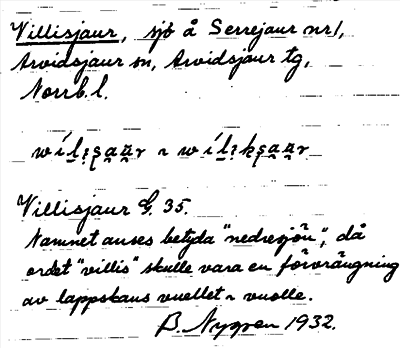 Villisjaur, sjö å Serrejaur nr 1,
Arvidsjaur sn, Arvidsjaur tg,
Norrb. l.
Villisjaur G. 35.
Namnet anses betyda "nedresjön", då
ordet "villis" skulle vara en förvrängning
av lappskans vuellet ~ vuolle.
B. Nygren 1932.